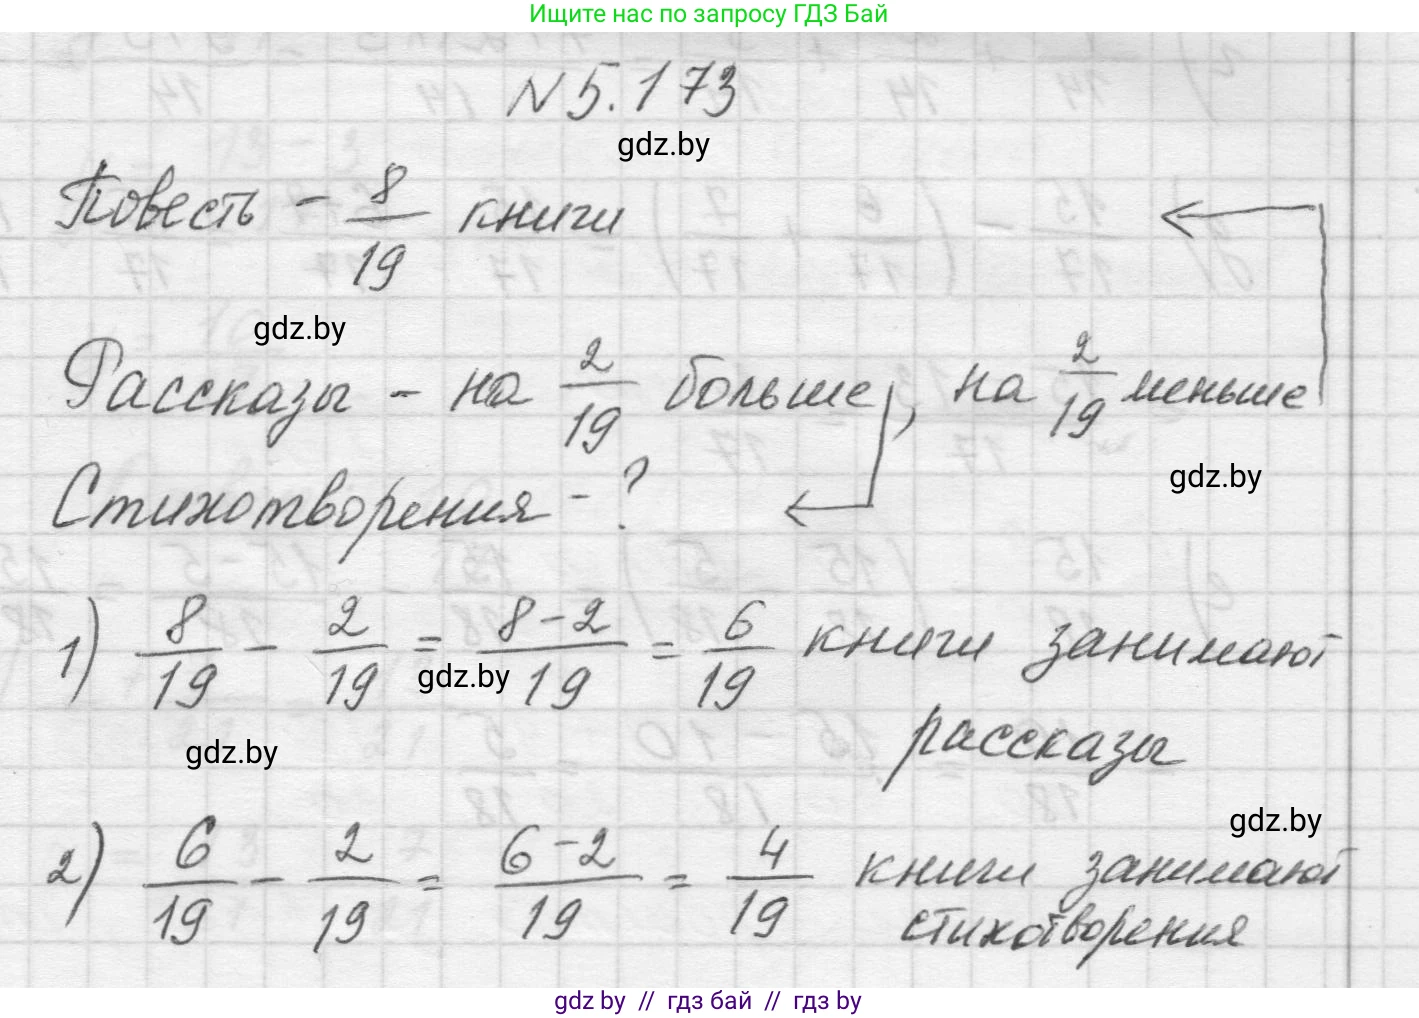 Ищите нас по запросу ГДЗ Бай
N 5.173
gdz.by
Повесть - 8/19 книги
gdz.by
Рассказы - на 2/19 больше, на 2/19 меньше
gdz.by
Стихотворения - ?
1) 8/19 - 2/19 = 8-2/19 = 6/19 книги занимают
gdz.by
рассказы
gdz.by
gdz.by
2) 6/19 - 2/19 = 6-2/19 = 4/19 книги занимают
стихотворения
gdz by // гдз бай // гдз by